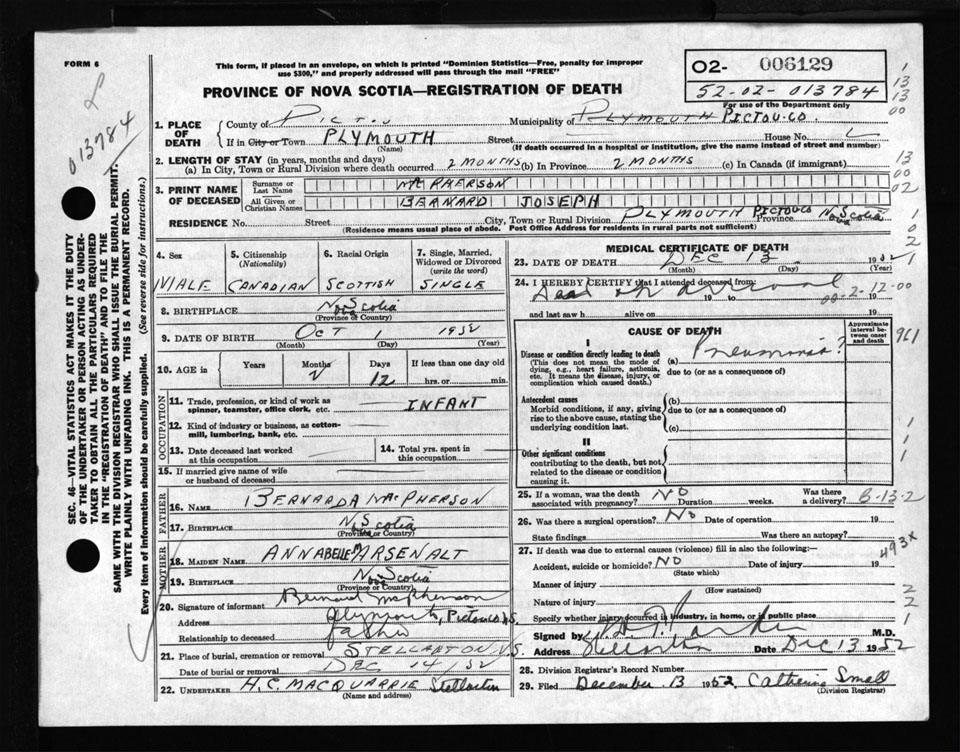 FORM 6
This form, if placed in an envelope, on which is printed "Dominion Statistics—Free, penalty for improper
use $300," and properly addressed will pass through the mail "FREE"
O2- 006129
52-02-013784
For use of the Department only
PROVINCE OF NOVA SCOTIA—REGISTRATION OF DEATH
013784
SEC. 46—VITAL STATISTICS ACT MAKES IT THE DUTY
OF THE UNDERTAKER OR PERSON ACTING AS UNDER-
TAKER TO OBTAIN ALL THE PARTICULARS REQUIRED
IN THE "REGISTRATION OF DEATH" AND TO FILE THE
SAME WITH THE DIVISION REGISTRAR WHO SHALL ISSUE THE BURIAL PERMIT.
WRITE PLAINLY WITH UNFADING INK. THIS IS A PERMANENT RECORD.
Every item of information should be carefully supplied. (See reverse side for instructions.)
1. PLACE OF DEATH
County of PICTOU Municipality of PLYMOUTH PICTOU. CO.
If in City or Town PLYMOUTH Street House No.
(Name) (If death occurred in a hospital or institution, give the name instead of street and number)
2. LENGTH OF STAY (in years, months and days)
(a) In City, Town or Rural Division where death occurred 2 MONTHS (b) In Province 2 MONTHS (c) In Canada (if immigrant)
3. PRINT NAME OF DECEASED
Surname or Last Name McPHERSON
All Given or Christian Names BERNARD JOSEPH
RESIDENCE No. Street City, Town or Rural Division PLYMOUTH PICTOU CO Province Nova Scotia
(Residence means usual place of abode. Post Office Address for residents in rural parts not sufficient)
4. Sex MALE
5. Citizenship (Nationality) CANADIAN
6. Racial Origin SCOTTISH
7. Single, Married, Widowed or Divorced (write the word) SINGLE
8. BIRTHPLACE Nova Scotia
(Province or Country)
9. DATE OF BIRTH OCT 1 1952
(Month) (Day) (Year)
10. AGE in Years Months 2 Days 12 If less than one day old hrs. or min.
OCCUPATION
11. Trade, profession, or kind of work as spinner, teamster, office clerk, etc. INFANT
12. Kind of industry or business, as cotton-mill, lumbering, bank, etc.
13. Date deceased last worked at this occupation
14. Total yrs. spent in this occupation
15. If married give name of wife or husband of deceased
FATHER
16. NAME BERNARD A MACPHERSON
17. BIRTHPLACE Nova Scotia
(Province or Country)
MOTHER
18. MAIDEN NAME ANNABELLE M ARSENALT
19. BIRTHPLACE Nova Scotia
(Province or Country)
20. Signature of informant Bernard McPherson
Address Plymouth, Pictou Co N.S.
Relationship to deceased father
21. Place of burial, cremation or removal STELLARTON N.S.
Date of burial or removal DEC 14/52
22. UNDERTAKER H.C. MACQUARRIE Stellarton
(Name and address)
MEDICAL CERTIFICATE OF DEATH
23. DATE OF DEATH DEC 13 1952
(Month) (Day) (Year)
24. I HEREBY CERTIFY that I attended deceased from:
Dead on arrival 19 to 19
00-2-12-00
and last saw h alive on 19
CAUSE OF DEATH
Approximate interval between onset and death
I
Disease or condition directly leading to death
(This does not mean the mode of dying, e.g., heart failure, asthenia, etc. It means the disease, injury, or complication which caused death.)
(a) Pneumonia?
due to (or as a consequence of)
Antecedent causes
Morbid conditions, if any, giving rise to the above cause, stating the underlying condition last.
(b)
due to (or as a consequence of)
(c)
II
Other significant conditions
contributing to the death, but not related to the disease or condition causing it.
25. If a woman, was the death associated with pregnancy? NO Duration weeks. Was there a delivery? B-13-2
26. Was there a surgical operation? No Date of operation 19
State findings Was there an autopsy?
27. If death was due to external causes (violence) fill in also the following:—
Accident, suicide or homicide? NO Date of injury 19
(State which)
493X
Manner of injury
(How sustained)
Nature of injury
Specify whether injury occurred in industry, in home, or in public place
Signed by M.D.
Address Date DEC 13 1952
28. Division Registrar's Record Number
29. Filed December 13 1952 Catherine Small
(Division Registrar)
1
13
13
00
13
00
02
1
0
2
1
961
1
1
1
2
2
1